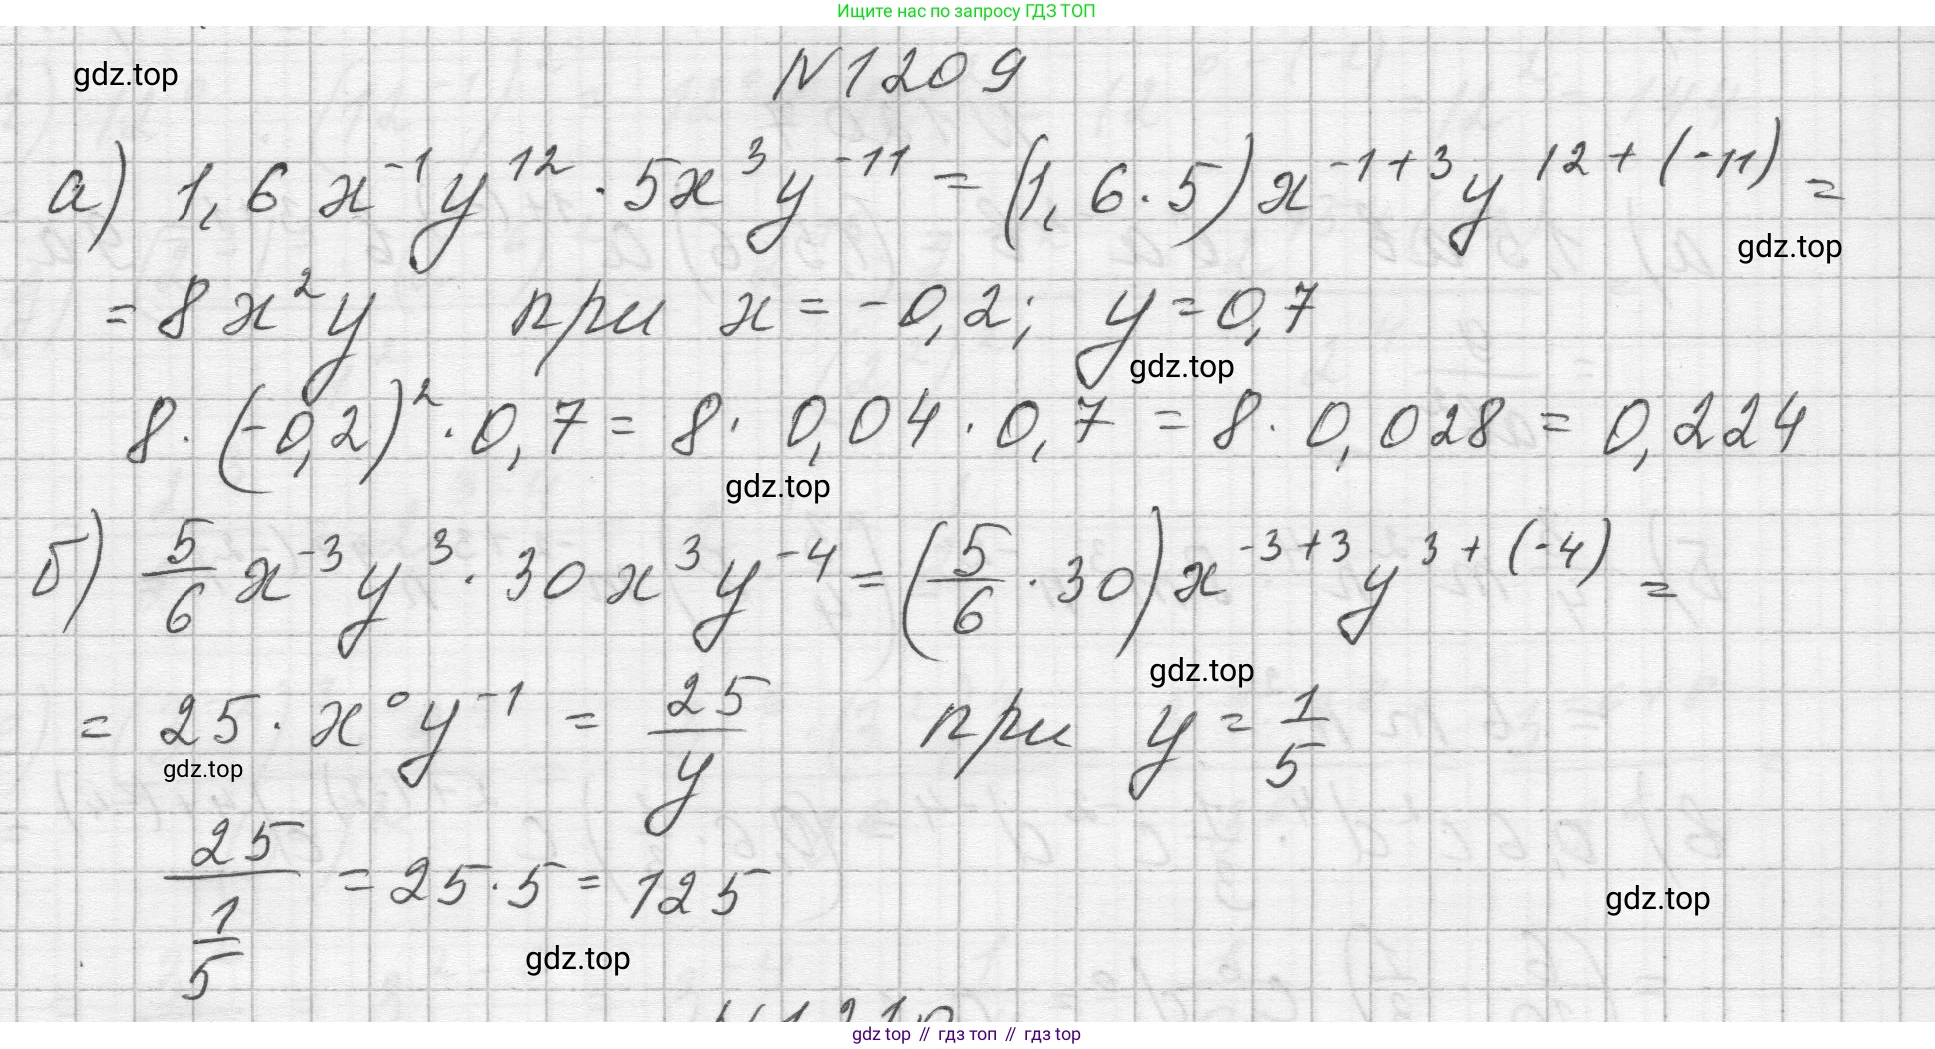 Ищите нас по запросу ГДЗ ТОП
gdz.top
N1209
а) 1,6x⁻¹y¹² · 5x³y⁻¹¹ = (1,6·5)x⁻¹⁺³y¹²⁺⁽⁻¹¹⁾ =
gdz.top
= 8x²y при x = -0,2; y = 0,7
gdz.top
8·(-0,2)²·0,7 = 8·0,04·0,7 = 8·0,028 = 0,224
gdz.top
б) 5/6 x⁻³y³·30x³y⁻⁴ = (5/6·30)x⁻³⁺³y³⁺⁽⁻⁴⁾ =
gdz.top
= 25·x⁰y⁻¹ = 25/y при y = 1/5
gdz.top
25/(1/5) = 25·5 = 125
gdz.top
gdz.top
N1210
gdz top // гдз топ // гдз top